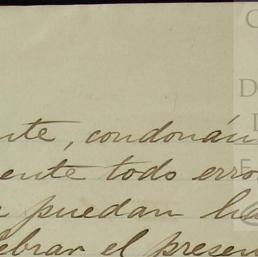 nte, condonán
ente todo erro
e puedan ha
lebrar el presen